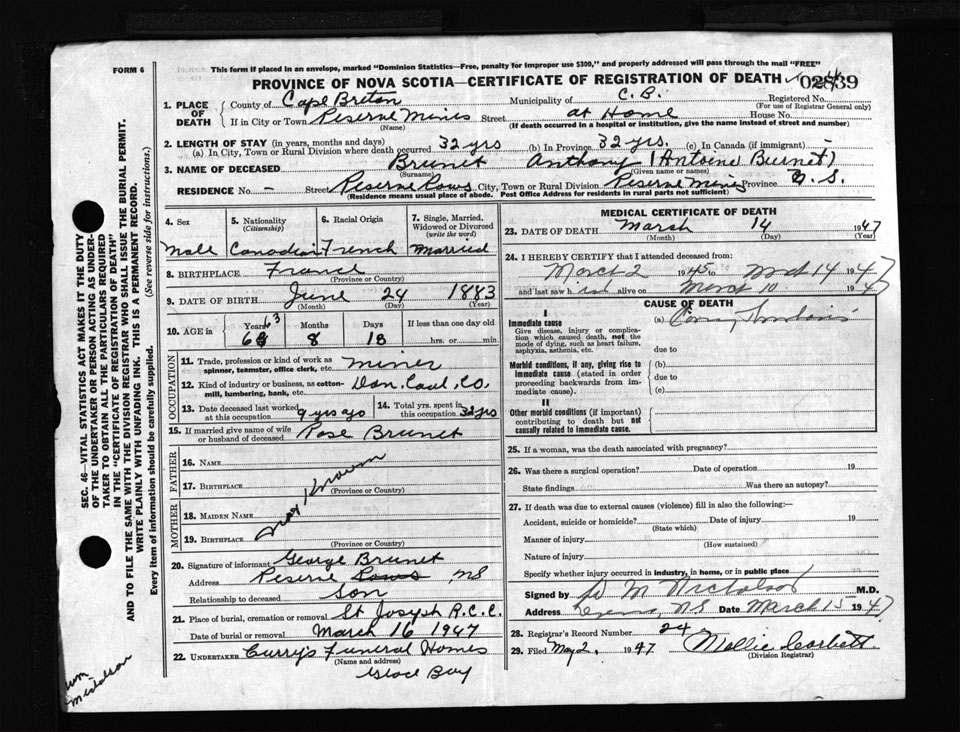 This form if placed in an envelope, marked "Dominion Statistics—Free, penalty for improper use $300," and properly addressed will pass through the mail "FREE"
FORM 6
PROVINCE OF NOVA SCOTIA—CERTIFICATE OF REGISTRATION OF DEATH
02839
1. PLACE OF DEATH
County of Cape Breton Municipality of C. B. Registered No.
(For use of Registrar General only)
If in City or Town Reserve Mines Street at Home House No.
(Name) (If death occurred in a hospital or institution, give the name instead of street and number)
2. LENGTH OF STAY (in years, months and days)
(a) In City, Town or Rural Division where death occurred 32 yrs (b) In Province 32 yrs. (c) In Canada (if immigrant) -
3. NAME OF DECEASED Brunet Anthony (Antoine Burnet)
(Surname) (Given name or names)
RESIDENCE No. - Street Reserve Rows City, Town or Rural Division Reserve Mines Province N. S.
(Residence means usual place of abode. Post Office Address for residents in rural parts not sufficient)
4. Sex
Male
5. Nationality (Citizenship)
Canadian
6. Racial Origin
French
7. Single, Married, Widowed or Divorced (write the word)
Married
8. BIRTHPLACE France
(Province or Country)
9. DATE OF BIRTH June 24 1883
(Month) (Day) (Year)
10. AGE in Years Months Days If less than one day old
63 8 18 hrs. or min.
OCCUPATION
11. Trade, profession or kind of work as spinner, teamster, office clerk, etc. miner
12. Kind of industry or business, as cotton-mill, lumbering, bank, etc. Dom. Coal. Co.
13. Date deceased last worked at this occupation 9 yrs ago
14. Total yrs. spent in this occupation 32 yrs
15. If married give name of wife or husband of deceased Rose Brunet
FATHER
16. NAME
17. BIRTHPLACE
(Province or Country)
MOTHER
18. MAIDEN NAME
19. BIRTHPLACE
(Province or Country)
not Known
20. Signature of informant George Brunet
Address Reserve Rows NS
Relationship to deceased Son
21. Place of burial, cremation or removal St Joseph R.C.C.
Date of burial or removal March 16 1947
22. UNDERTAKER Curry's Funeral Homes
(Name and address)
Glace Bay
MEDICAL CERTIFICATE OF DEATH
23. DATE OF DEATH March 14 1947
(Month) (Day) (Year)
24. I HEREBY CERTIFY that I attended deceased from:
March 2 1945 to Mch 14 1947
and last saw him alive on March 10 1947
CAUSE OF DEATH
I
Immediate cause
Give disease, injury or complication which caused death, not the mode of dying, such as heart failure, asphyxia, asthenia, etc.
(a)
due to
Morbid conditions, if any, giving rise to immediate cause (stated in order proceeding backwards from immediate cause).
(b)
due to
(c)
II
Other morbid conditions (if important) contributing to death but not causally related to immediate cause.
25. If a woman, was the death associated with pregnancy?
26. Was there a surgical operation? Date of operation 19
State findings Was there an autopsy?
27. If death was due to external causes (violence) fill in also the following:—
Accident, suicide or homicide? Date of injury 19
(State which)
Manner of injury
(How sustained)
Nature of injury
Specify whether injury occurred in industry, in home, or in public place
Signed by M Nicholson M.D.
Address N.S Date March 15 1947
28. Registrar's Record Number 24
29. Filed May 2, 1947 Mollie Corbett.
(Division Registrar)
SEC. 46—VITAL STATISTICS ACT MAKES IT THE DUTY
OF THE UNDERTAKER OR PERSON ACTING AS UNDERTAKER
TO OBTAIN ALL THE PARTICULARS REQUIRED
IN THE "CERTIFICATE OF REGISTRATION OF DEATH"
AND TO FILE THE SAME WITH THE DIVISION REGISTRAR WHO SHALL ISSUE THE BURIAL PERMIT.
WRITE PLAINLY WITH UNFADING INK. THIS IS A PERMANENT RECORD.
Every item of information should be carefully supplied. (See reverse side for instructions.)